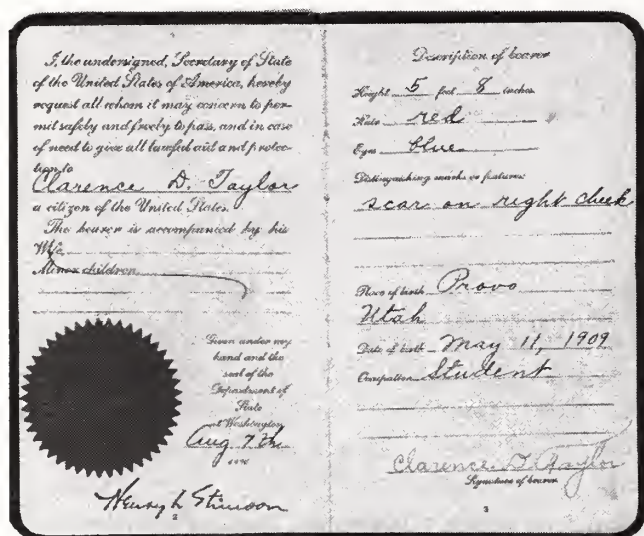 I, the undersigned, Secretary of State
of the United States of America, hereby
request all whom it may concern to per-
mit safely and freely to pass, and in case
of need to give all lawful aid and protec-
tion to
Clarence D. Taylor
a citizen of the United States.
The bearer is accompanied by his
Wife,
Minor children,
Given under my
hand and the
seal of the
Department of
State
at Washington,
Aug 7th
Henry L Stimson
Description of bearer
Height 5 feet 8 inches
Hair red
Eyes blue
Distinguishing marks or features:
scar on right cheek
Place of birth Provo
Utah
Date of birth May 11, 1909
Occupation Student
Clarence D Taylor
Signature of bearer
3